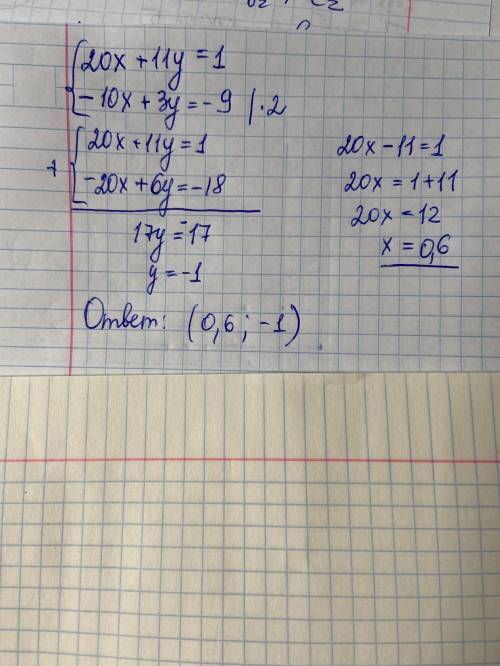 20x + 11y = 1
-10x + 3y = -9 | · 2
+ 20x + 11y = 1
-20x + 6y = -18
17y = -17
y = -1
20x - 11 = 1
20x = 1 + 11
20x = 12
x = 0,6
Ответ: (0,6 ; -1)